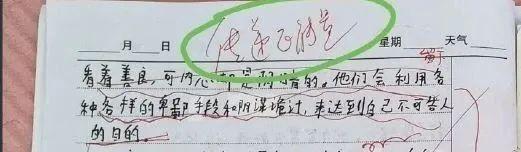 传递正能量
月 日 星期 天气
看着善良，可内心却是阴暗的。他们会利用各
种各样的卑鄙手段和阴谋诡计，来达到自己不可告人
的目的。